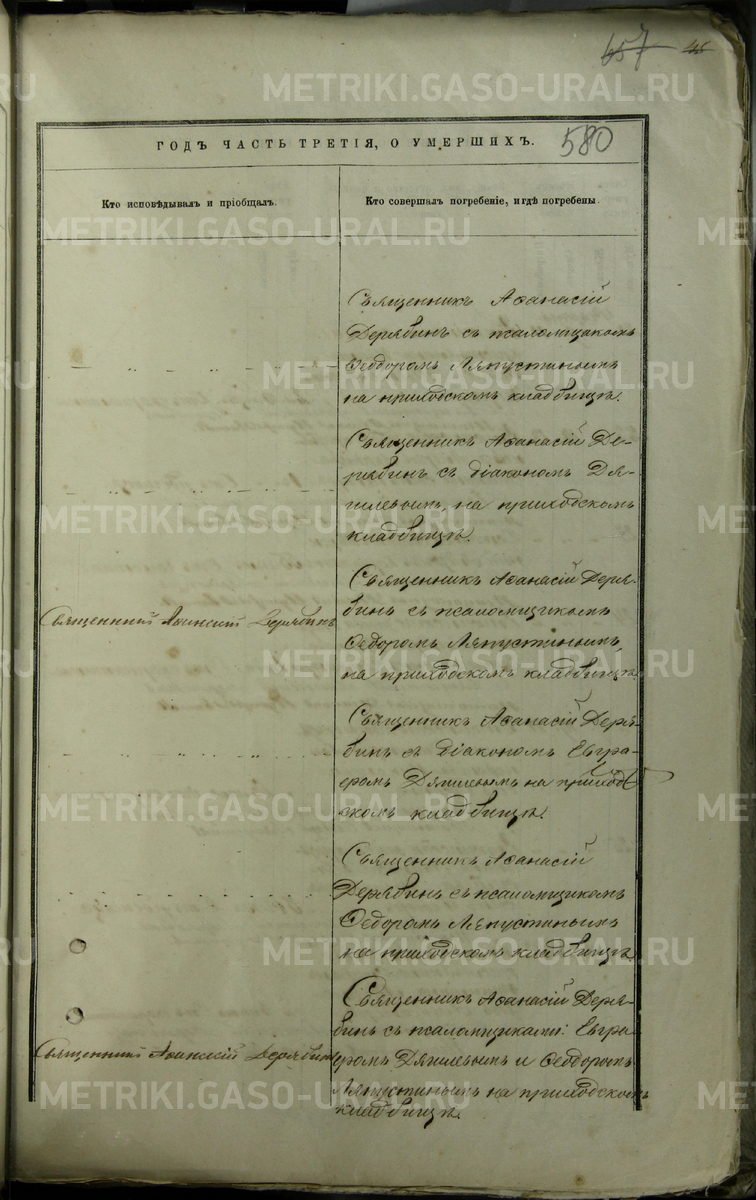 657 45
METRIKI.GASO-URAL.RU
ГОДЪ ЧАСТЬ ТРЕТІЯ, О УМЕРШИХЪ.
580
Кто исповѣдывалъ и пріобщалъ.
Кто совершалъ погребеніе, и гдѣ погребены.
Священникъ Аѳанасій
Дерябинъ съ псаломщикомъ
Ѳеодоромъ Ляпустинымъ
на приходскомъ кладбищѣ.
Священникъ Аѳанасій Де-
рябинъ съ діакономъ Дя-
гилевымъ, на приходскомъ
кладбищѣ.
Священникъ Аѳанасій Дерябинъ
Священникъ Аѳанасій Деря-
бинъ съ псаломщикомъ
Ѳеодоромъ Ляпустинымъ,
на приходскомъ кладбищѣ.
Священникъ Аѳанасій Деря-
бинъ съ діакономъ Евгра-
фомъ Дягилевымъ на приход-
скомъ кладбищѣ.
Священникъ Аѳанасій
Дерябинъ съ псаломщикомъ
Ѳедоромъ Ляпустинымъ
на приходскомъ кладбищѣ.
Священникъ Аѳанасій Дерябинъ
Священникъ Аѳанасій Деря-
бинъ съ псаломщиками: Евгра-
фомъ Дягилевымъ и Ѳеодоромъ
Ляпустинымъ на приходскомъ
кладбищѣ.